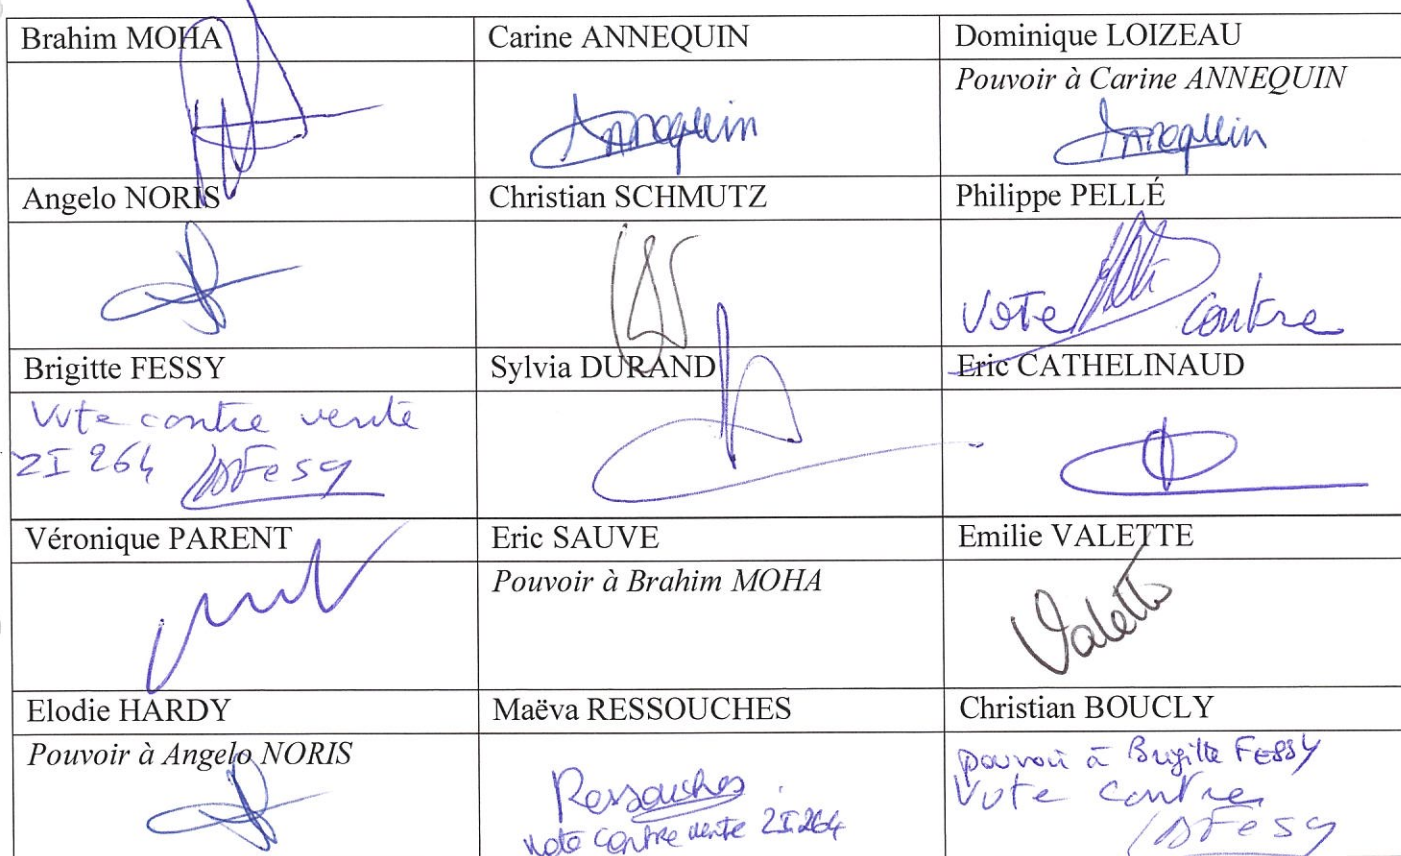 Brahim MOHA
Carine ANNEQUIN
Dominique LOIZEAU
Pouvoir à Carine ANNEQUIN
Annequin
Annequin
Angelo NORIS
Christian SCHMUTZ
Philippe PELLÉ
Vote contre
Brigitte FESSY
Sylvia DURAND
Eric CATHELINAUD
Vote contre vente
ZI 264 Fessy
Véronique PARENT
Eric SAUVE
Emilie VALETTE
Pouvoir à Brahim MOHA
Valette
Elodie HARDY
Maëva RESSOUCHES
Christian BOUCLY
Pouvoir à Angelo NORIS
Ressouches
vote contre vente ZI 264
pouvoir à Brigitte FESSY
Vote contre
Fessy